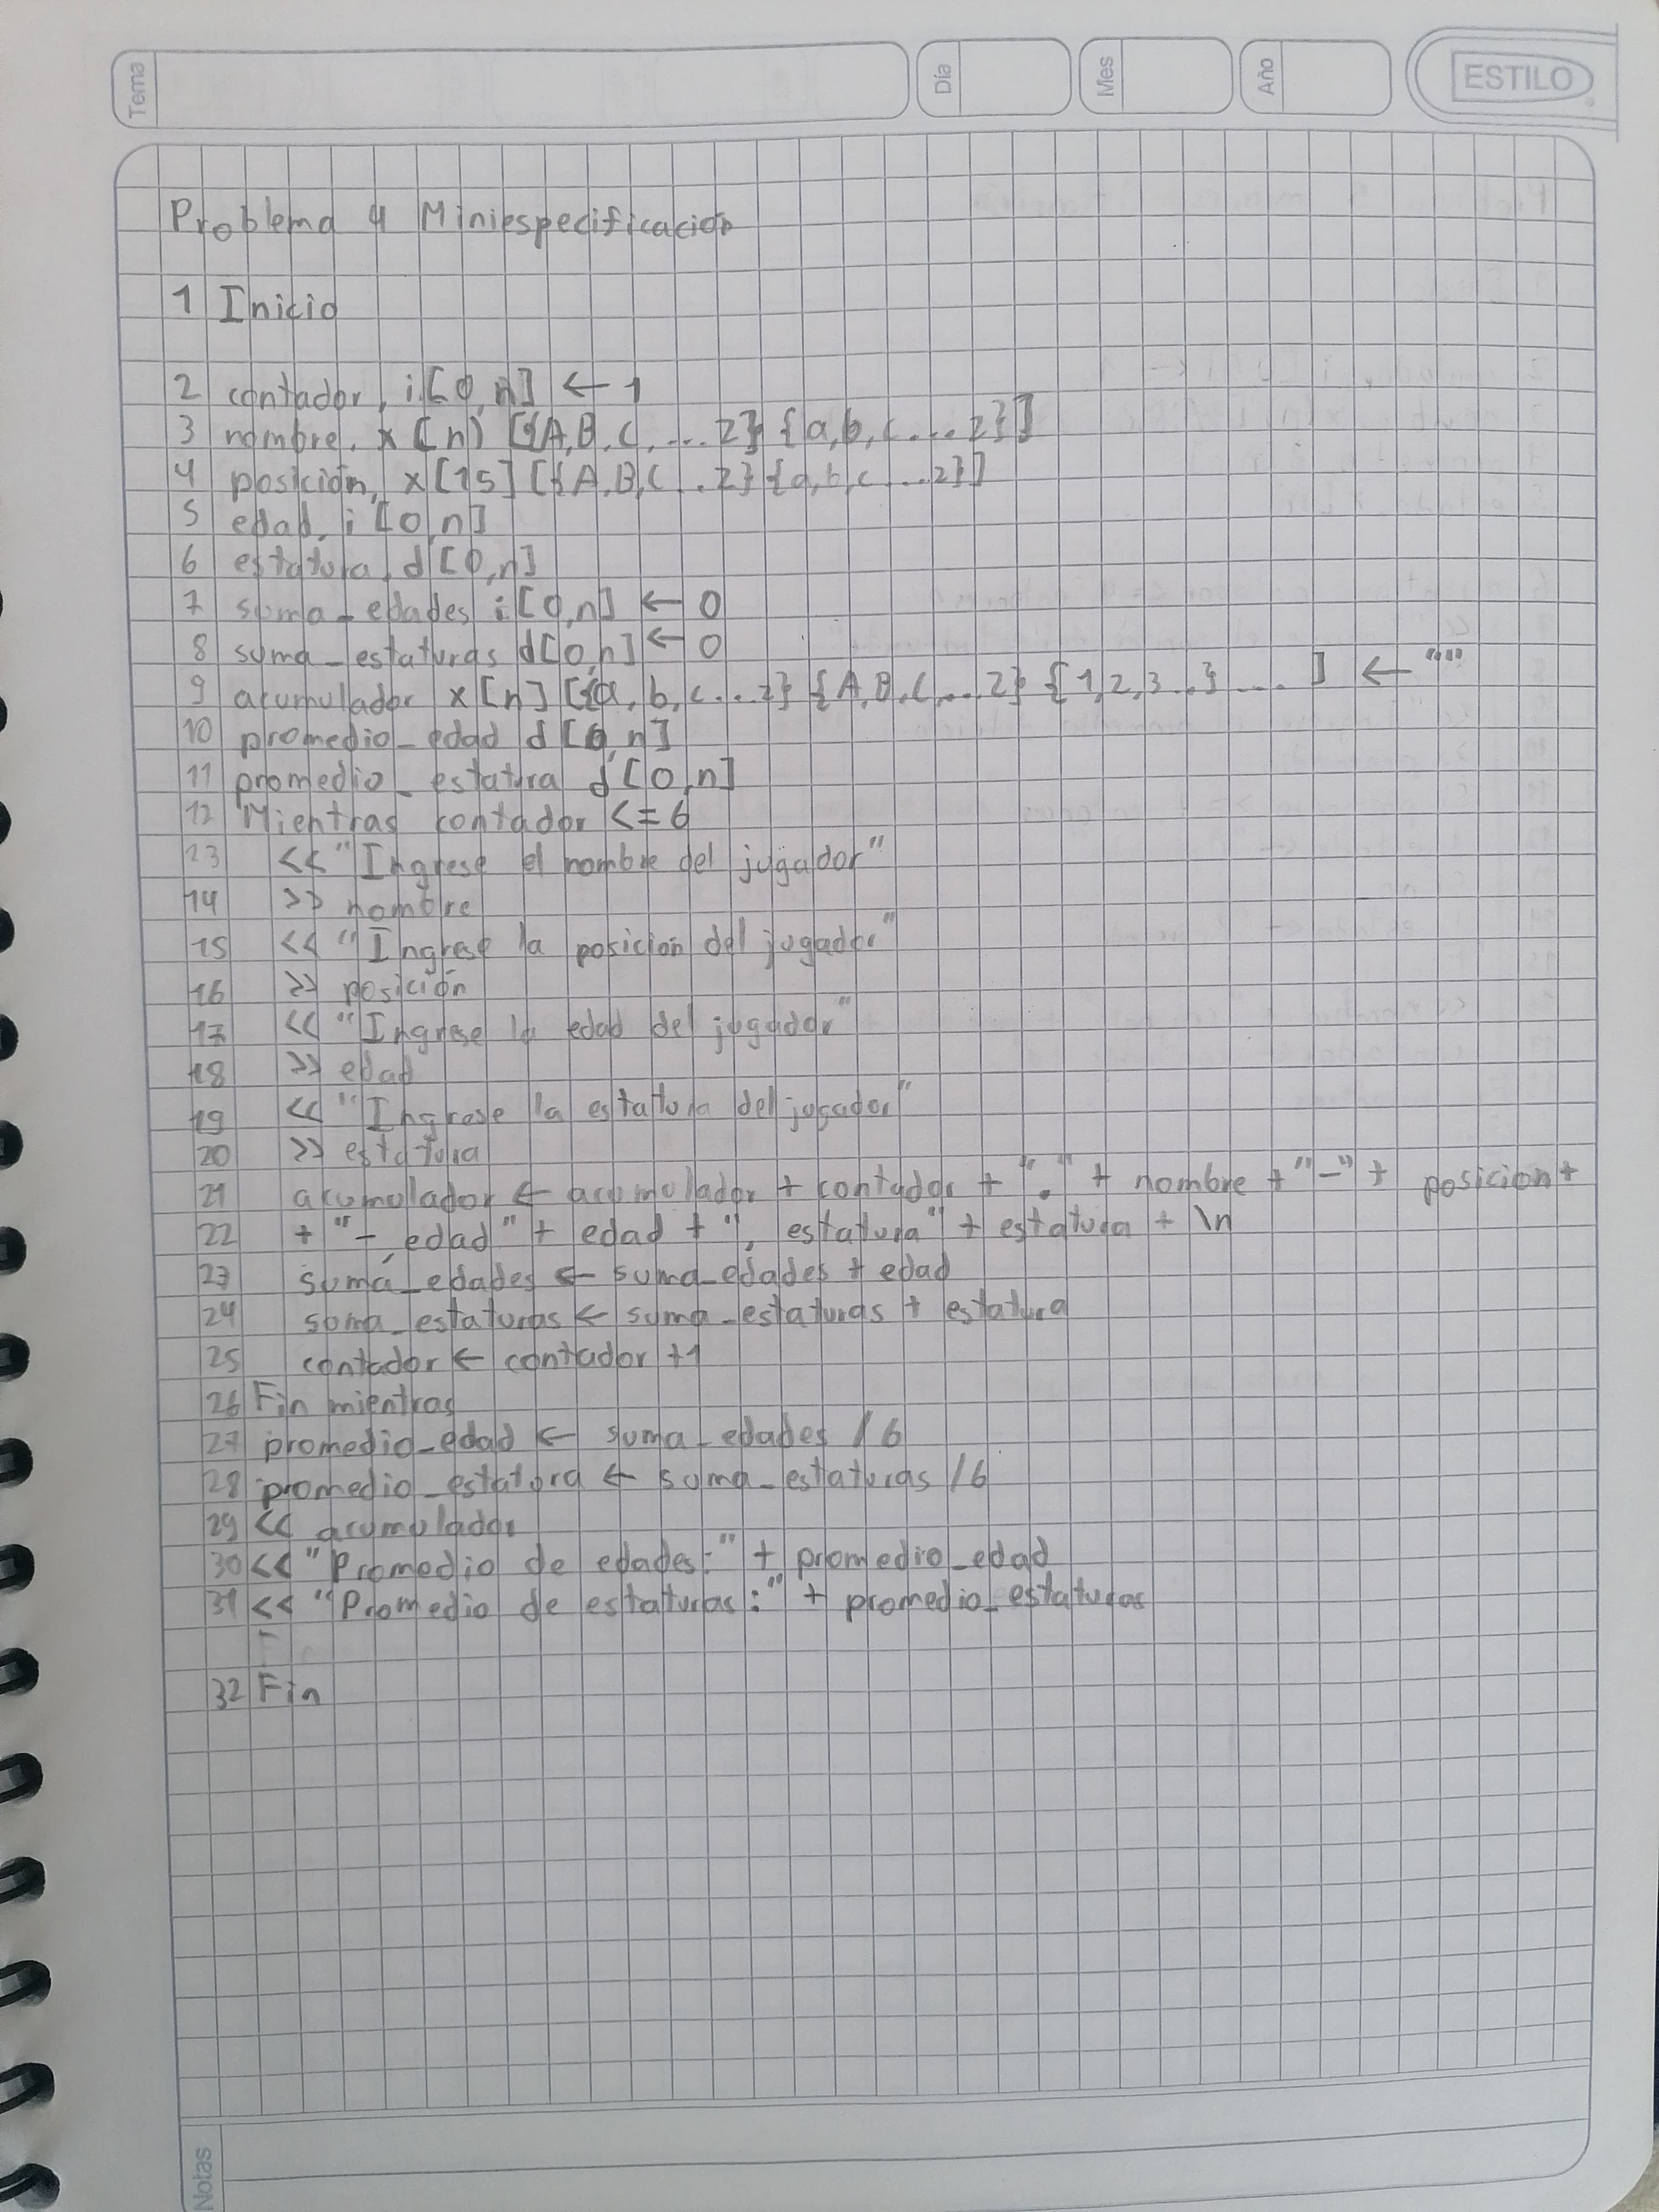 Tema
Día
Mes
Año
ESTILO
Problema 4 Miniespecificación
1 Inicio
2 contador, i[0,n] ← 1
3 nombre, x[n) [{A,B,C,...Z} {a,b,c....z}]
4 posición, x[15] [{A,B,C...Z} {a,b,c...z}]
5 edad, i[0,n]
6 estatura, d[0,n]
7 suma_edades i[0,n] ← 0
8 suma_estaturas d[0,n] ← 0
9 acumulador x[n] [{a,b,c...z} {A,B,C,...Z} {1,2,3..} .... ] ← ""
10 promedio_edad d[0,n]
11 promedio_estatura d[0,n]
12 Mientras contador <= 6
13 << "Ingrese el nombre del jugador"
14 >> nombre
15 << "Ingrese la posicion del jugador"
16 >> posición
17 << "Ingrese la edad del jugador"
18 >> edad
19 << "Ingrese la estatura del jugador"
20 >> estatura
21 acumulador ← acumulador + contador + "." + nombre + "-" + posicion +
22 + "-, edad" + edad + ", estatura" + estatura + \n
23 suma_edades ← suma_edades + edad
24 suma_estaturas ← suma_estaturas + estatura
25 contador ← contador +1
26 Fin mientras
27 promedio_edad ← suma_edades / 6
28 promedio_estatura ← suma_estaturas /6
29 << acumulador
30 << "Promedio de edades:" + promedio_edad
31 << "Promedio de estaturas:" + promedio_estaturas
32 Fin
Notas